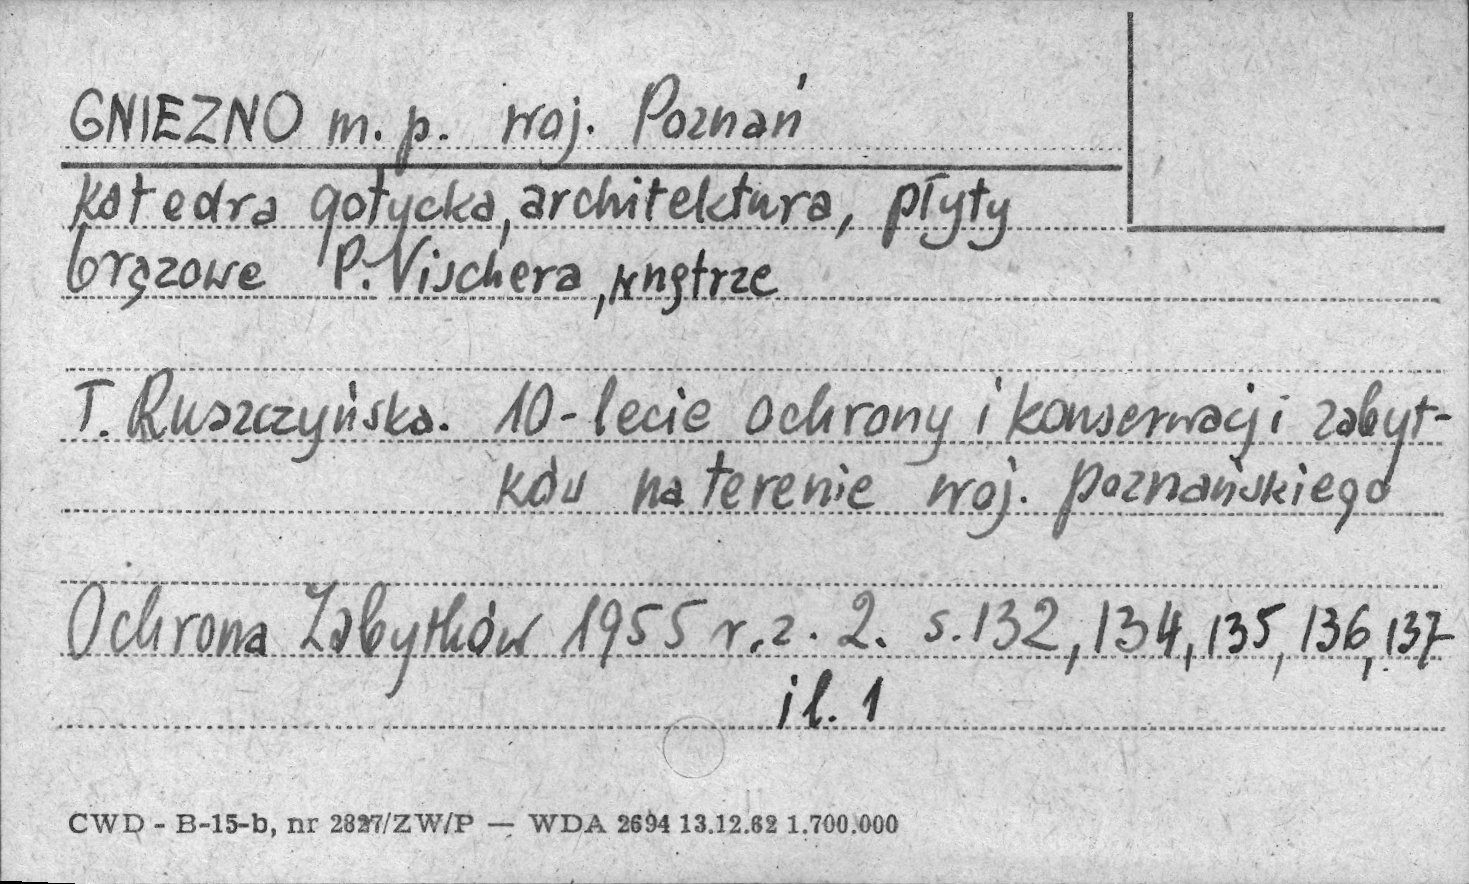 GNIEZNO m. p. woj. Poznań
katedra gotycka, architektura, płyty
brązowe P. Vischera, wnętrze
T. Ruszczyńska. 10-lecie ochrony i konserwacji zabyt-
ków na terenie woj. poznańskiego
Ochrona Zabytków 1955 r. z. 2. s. 132, 134, 135, 136, 137
il. 1
CWD - B-15-b, nr 2827/ZW/P — WDA 2694 13.12.62 1.700.000